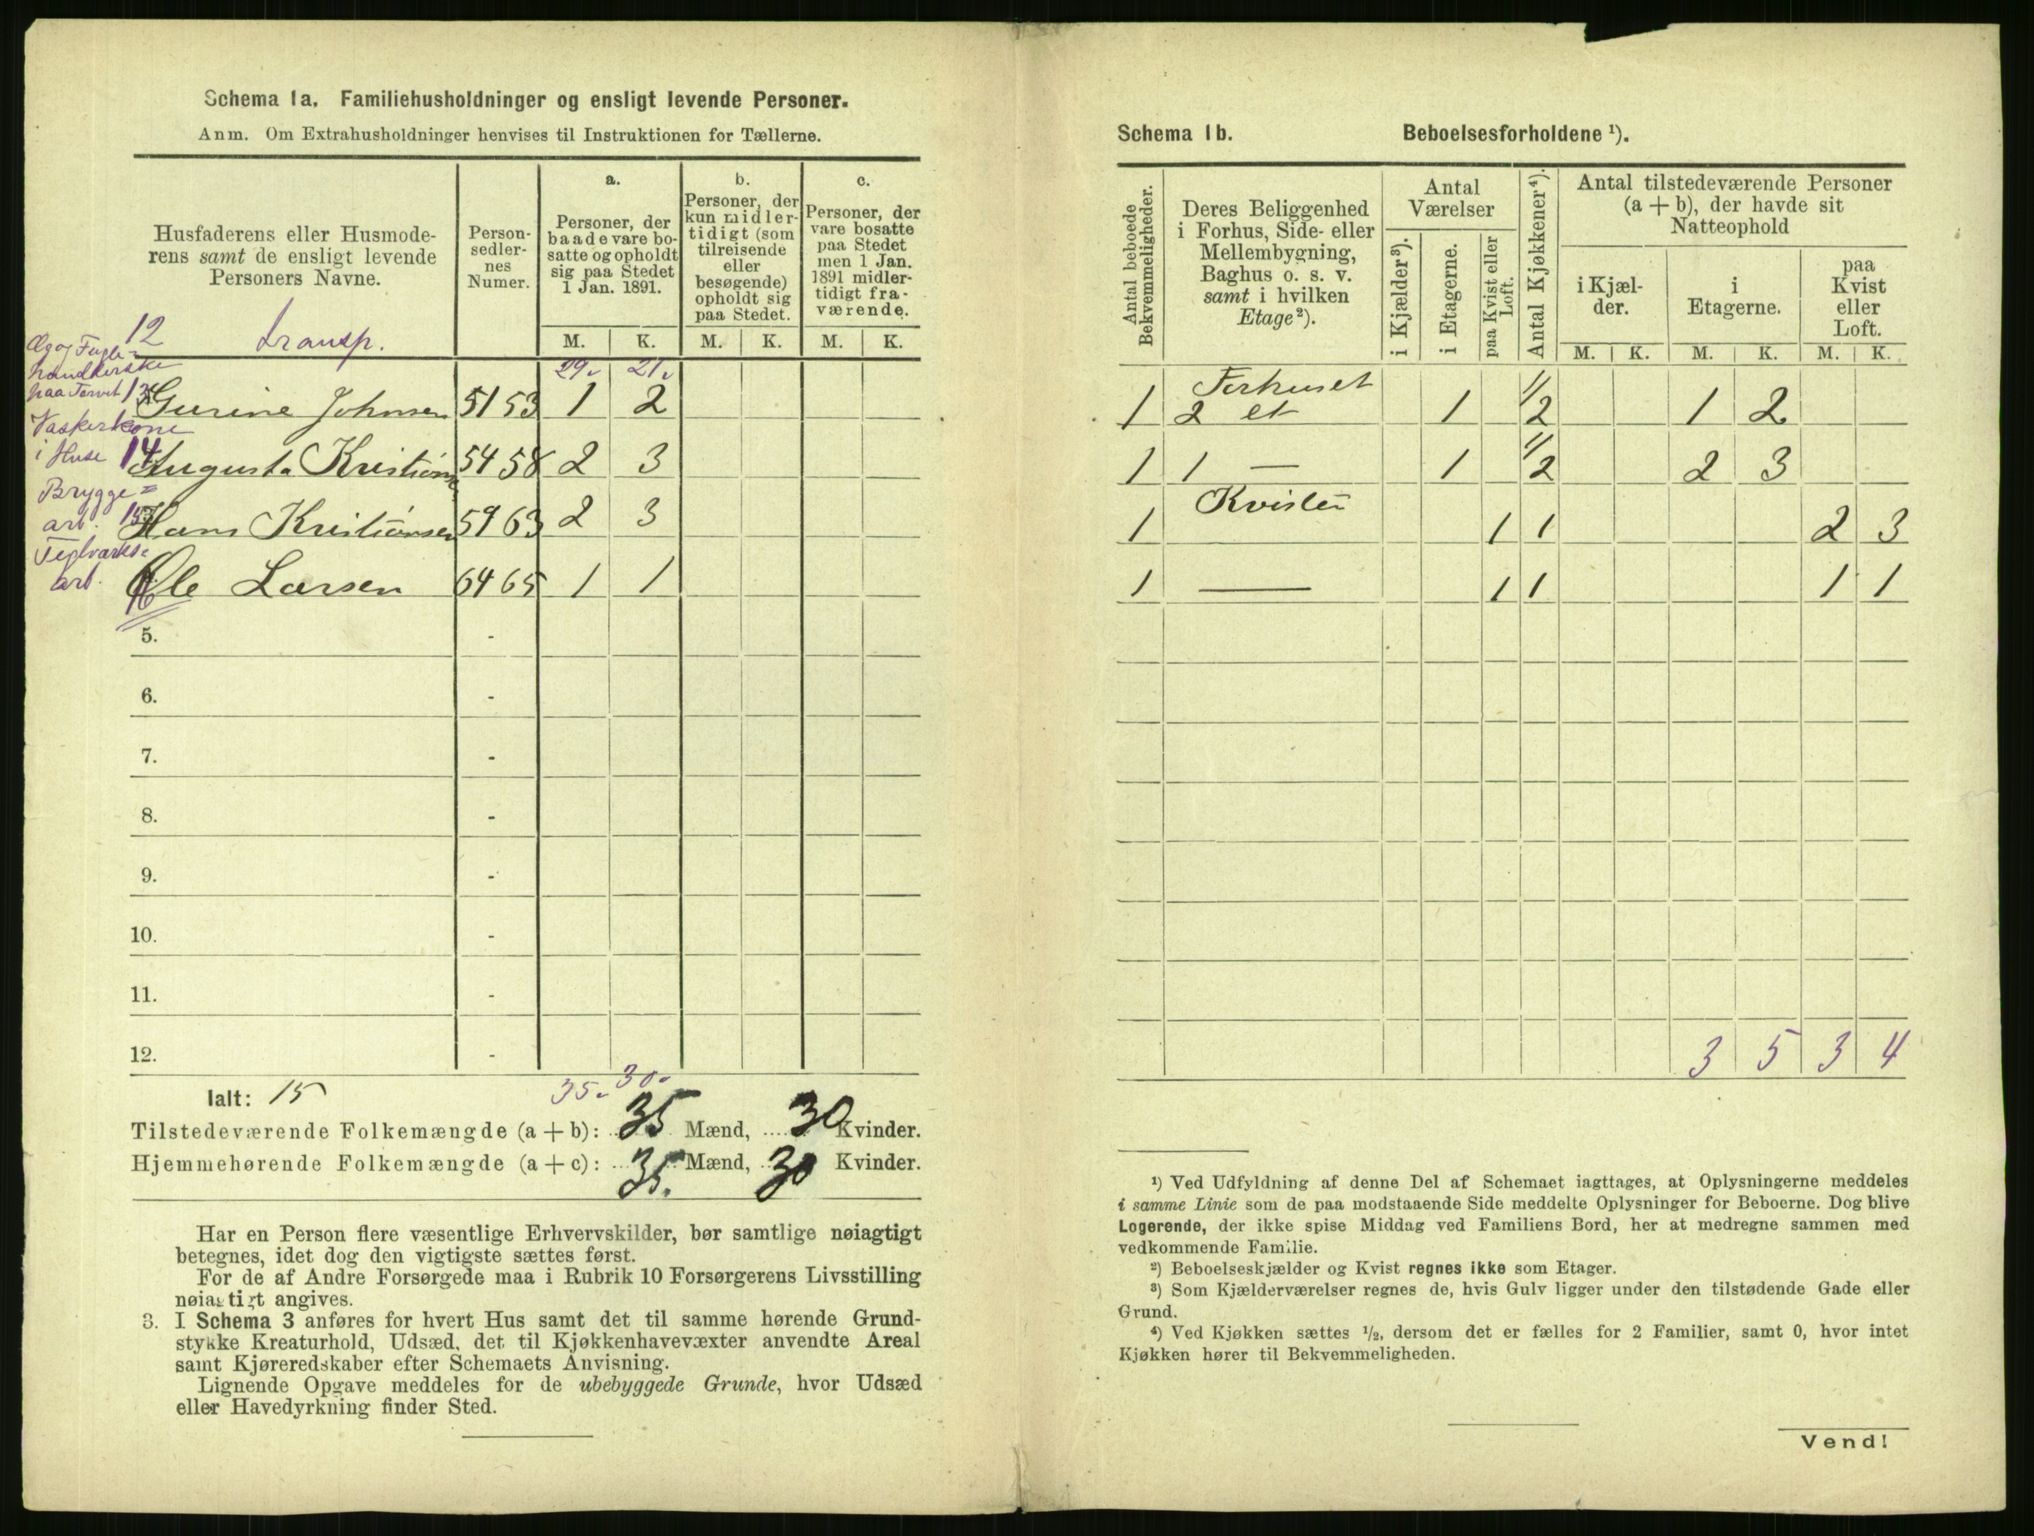 Schema 1a. Familiehusholdninger og ensligt levende Personer.
Anm. Om Extrahusholdninger henvises til Instruktionen for Tællerne.
Husfaderens eller Husmode-
rens samt de ensligt levende
Personers Navne.
Person-
sedler-
nes
Numer.
a.
Personer, der
baade vare bo-
satte og opholdt
sig paa Stedet
1 Jan. 1891.
b.
Personer, der
kun midler-
tidigt (som
tilreisende
eller
besøgende)
opholdt sig
paa Stedet.
c.
Personer, der
vare bosatte
paa Stedet
men 1 Jan.
1891 midler-
tidigt fra-
værende.
M. K. M. K. M. K.
12 transp. 29. 21.
Æg og Fugle-
handlerske
paa Torvet 13 Gurine Johnsen 51 53 1 2
Vaskerkone
i Huse 14 Augusta Kristians 54 58 2 3
Brygge=
arb. 15 Hans Kristiansen 59 63 2 3
Teglværks-
arb. 16 Ole Larsen 64 65 1 1
5. -
6. -
7. -
8. -
9. -
10. -
11. -
12. -
Ialt: 15 35. 30.
Tilstedeværende Folkemængde (a + b): 35 Mænd, 30 Kvinder.
Hjemmehørende Folkemængde (a + c): 35. Mænd, 30 Kvinder.
Har en Person flere væsentlige Erhvervskilder, bør samtlige nøiagtigt
betegnes, idet dog den vigtigste sættes først.
For de af Andre Forsørgede maa i Rubrik 10 Forsørgerens Livsstilling
nøiagtigt angives.
3. I Schema 3 anføres for hvert Hus samt det til samme hørende Grund-
stykke Kreaturhold, Udsæd, det til Kjøkkenhavevæxter anvendte Areal
samt Kjøreredskaber efter Schemaets Anvisning.
Lignende Opgave meddeles for de ubebyggede Grunde, hvor Udsæd
eller Havedyrkning finder Sted.
Schema 1b. Beboelsesforholdene ¹).
Antal beboede
Bekvemmeligheder.
Deres Beliggenhed
i Forhus, Side- eller
Mellembygning,
Baghus o. s. v.
samt i hvilken
Etage²).
Antal
Værelser
i Kjælder³).
i Etagerne.
paa Kvist eller
Loft.
Antal Kjøkkener⁴).
Antal tilstedeværende Personer
(a + b), der havde sit
Natteophold
i Kjæl-
der.
i
Etagerne.
paa
Kvist
eller
Loft.
M. K. M. K. M. K.
Forhuset
1 2 et 1 1/2 1 2
1 1 — 1 1/2 2 3
Kvisten
1 1 1 2 3
1 — 1 1 1 1
3 5 3 4
¹) Ved Udfyldning af denne Del af Schemaet iagttages, at Oplysningerne meddeles
i samme Linie som de paa modstaaende Side meddelte Oplysninger for Beboerne. Dog blive
Logerende, der ikke spise Middag ved Familiens Bord, her at medregne sammen med
vedkommende Familie.
²) Beboelseskjælder og Kvist regnes ikke som Etager.
³) Som Kjælderværelser regnes de, hvis Gulv ligger under den tilstødende Gade eller
Grund.
⁴) Ved Kjøkken sættes ½, dersom det er fælles for 2 Familier, samt 0, hvor intet
Kjøkken hører til Bekvemmeligheden.
Vend!